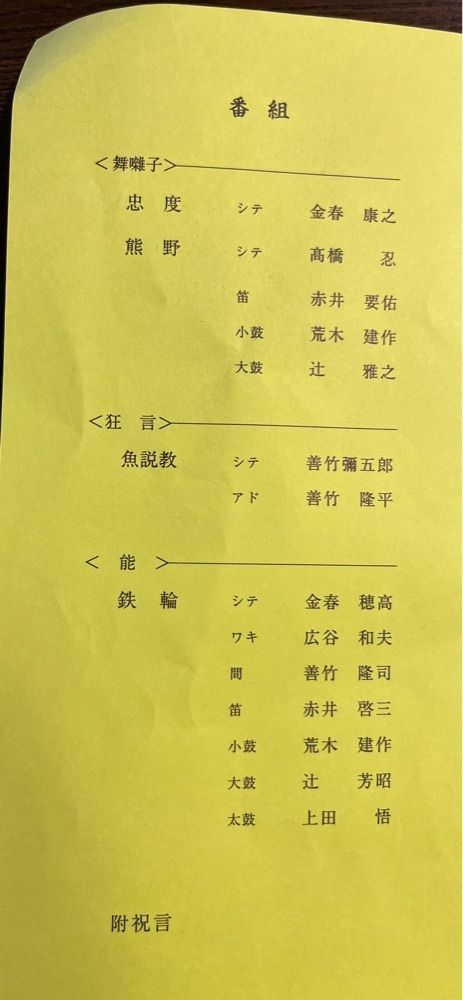 番組
<舞囃子>
忠度 シテ 金春 康之
熊野 シテ 髙橋 忍
笛 赤井 要佑
小鼓 荒木 建作
大鼓 辻 雅之
<狂言>
魚説教 シテ 善竹彌五郎
アド 善竹 隆平
<能>
鉄輪 シテ 金春 穂高
ワキ 広谷 和夫
間 善竹 隆司
笛 赤井 啓三
小鼓 荒木 建作
大鼓 辻 芳昭
太鼓 上田 悟
附祝言